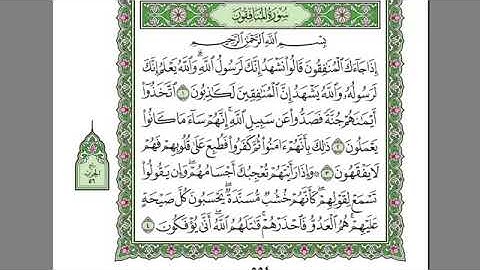 سُورَةُ المُنَافِقُونَ
بِسْمِ اللَّهِ الرَّحْمَٰنِ الرَّحِيمِ
إِذَا جَآءَكَ ٱلْمُنَٰفِقُونَ قَالُوا۟ نَشْهَدُ إِنَّكَ لَرَسُولُ ٱللَّهِ ۗ وَٱللَّهُ يَعْلَمُ إِنَّكَ
لَرَسُولُهُۥ وَٱللَّهُ يَشْهَدُ إِنَّ ٱلْمُنَٰفِقِينَ لَكَٰذِبُونَ ١ ٱتَّخَذُوٓا۟
أَيْمَٰنَهُمْ جُنَّةً فَصَدُّوا۟ عَن سَبِيلِ ٱللَّهِ ۚ إِنَّهُمْ سَآءَ مَا كَانُوا۟
يَعْمَلُونَ ٢ ذَٰلِكَ بِأَنَّهُمْ ءَامَنُوا۟ ثُمَّ كَفَرُوا۟ فَطُبِعَ عَلَىٰ قُلُوبِهِمْ فَهُمْ
لَا يَفْقَهُونَ ٣ ۞ وَإِذَا رَأَيْتَهُمْ تُعْجِبُكَ أَجْسَامُهُمْ ۖ وَإِن يَقُولُوا۟
تَسْمَعْ لِقَوْلِهِمْ ۖ كَأَنَّهُمْ خُشُبٌ مُّسَنَّدَةٌ ۖ يَحْسَبُونَ كُلَّ صَيْحَةٍ
عَلَيْهِمْ ۚ هُمُ ٱلْعَدُوُّ فَٱحْذَرْهُمْ ۚ قَٰتَلَهُمُ ٱللَّهُ ۖ أَنَّىٰ يُؤْفَكُونَ ٤
الحزب
٥٦